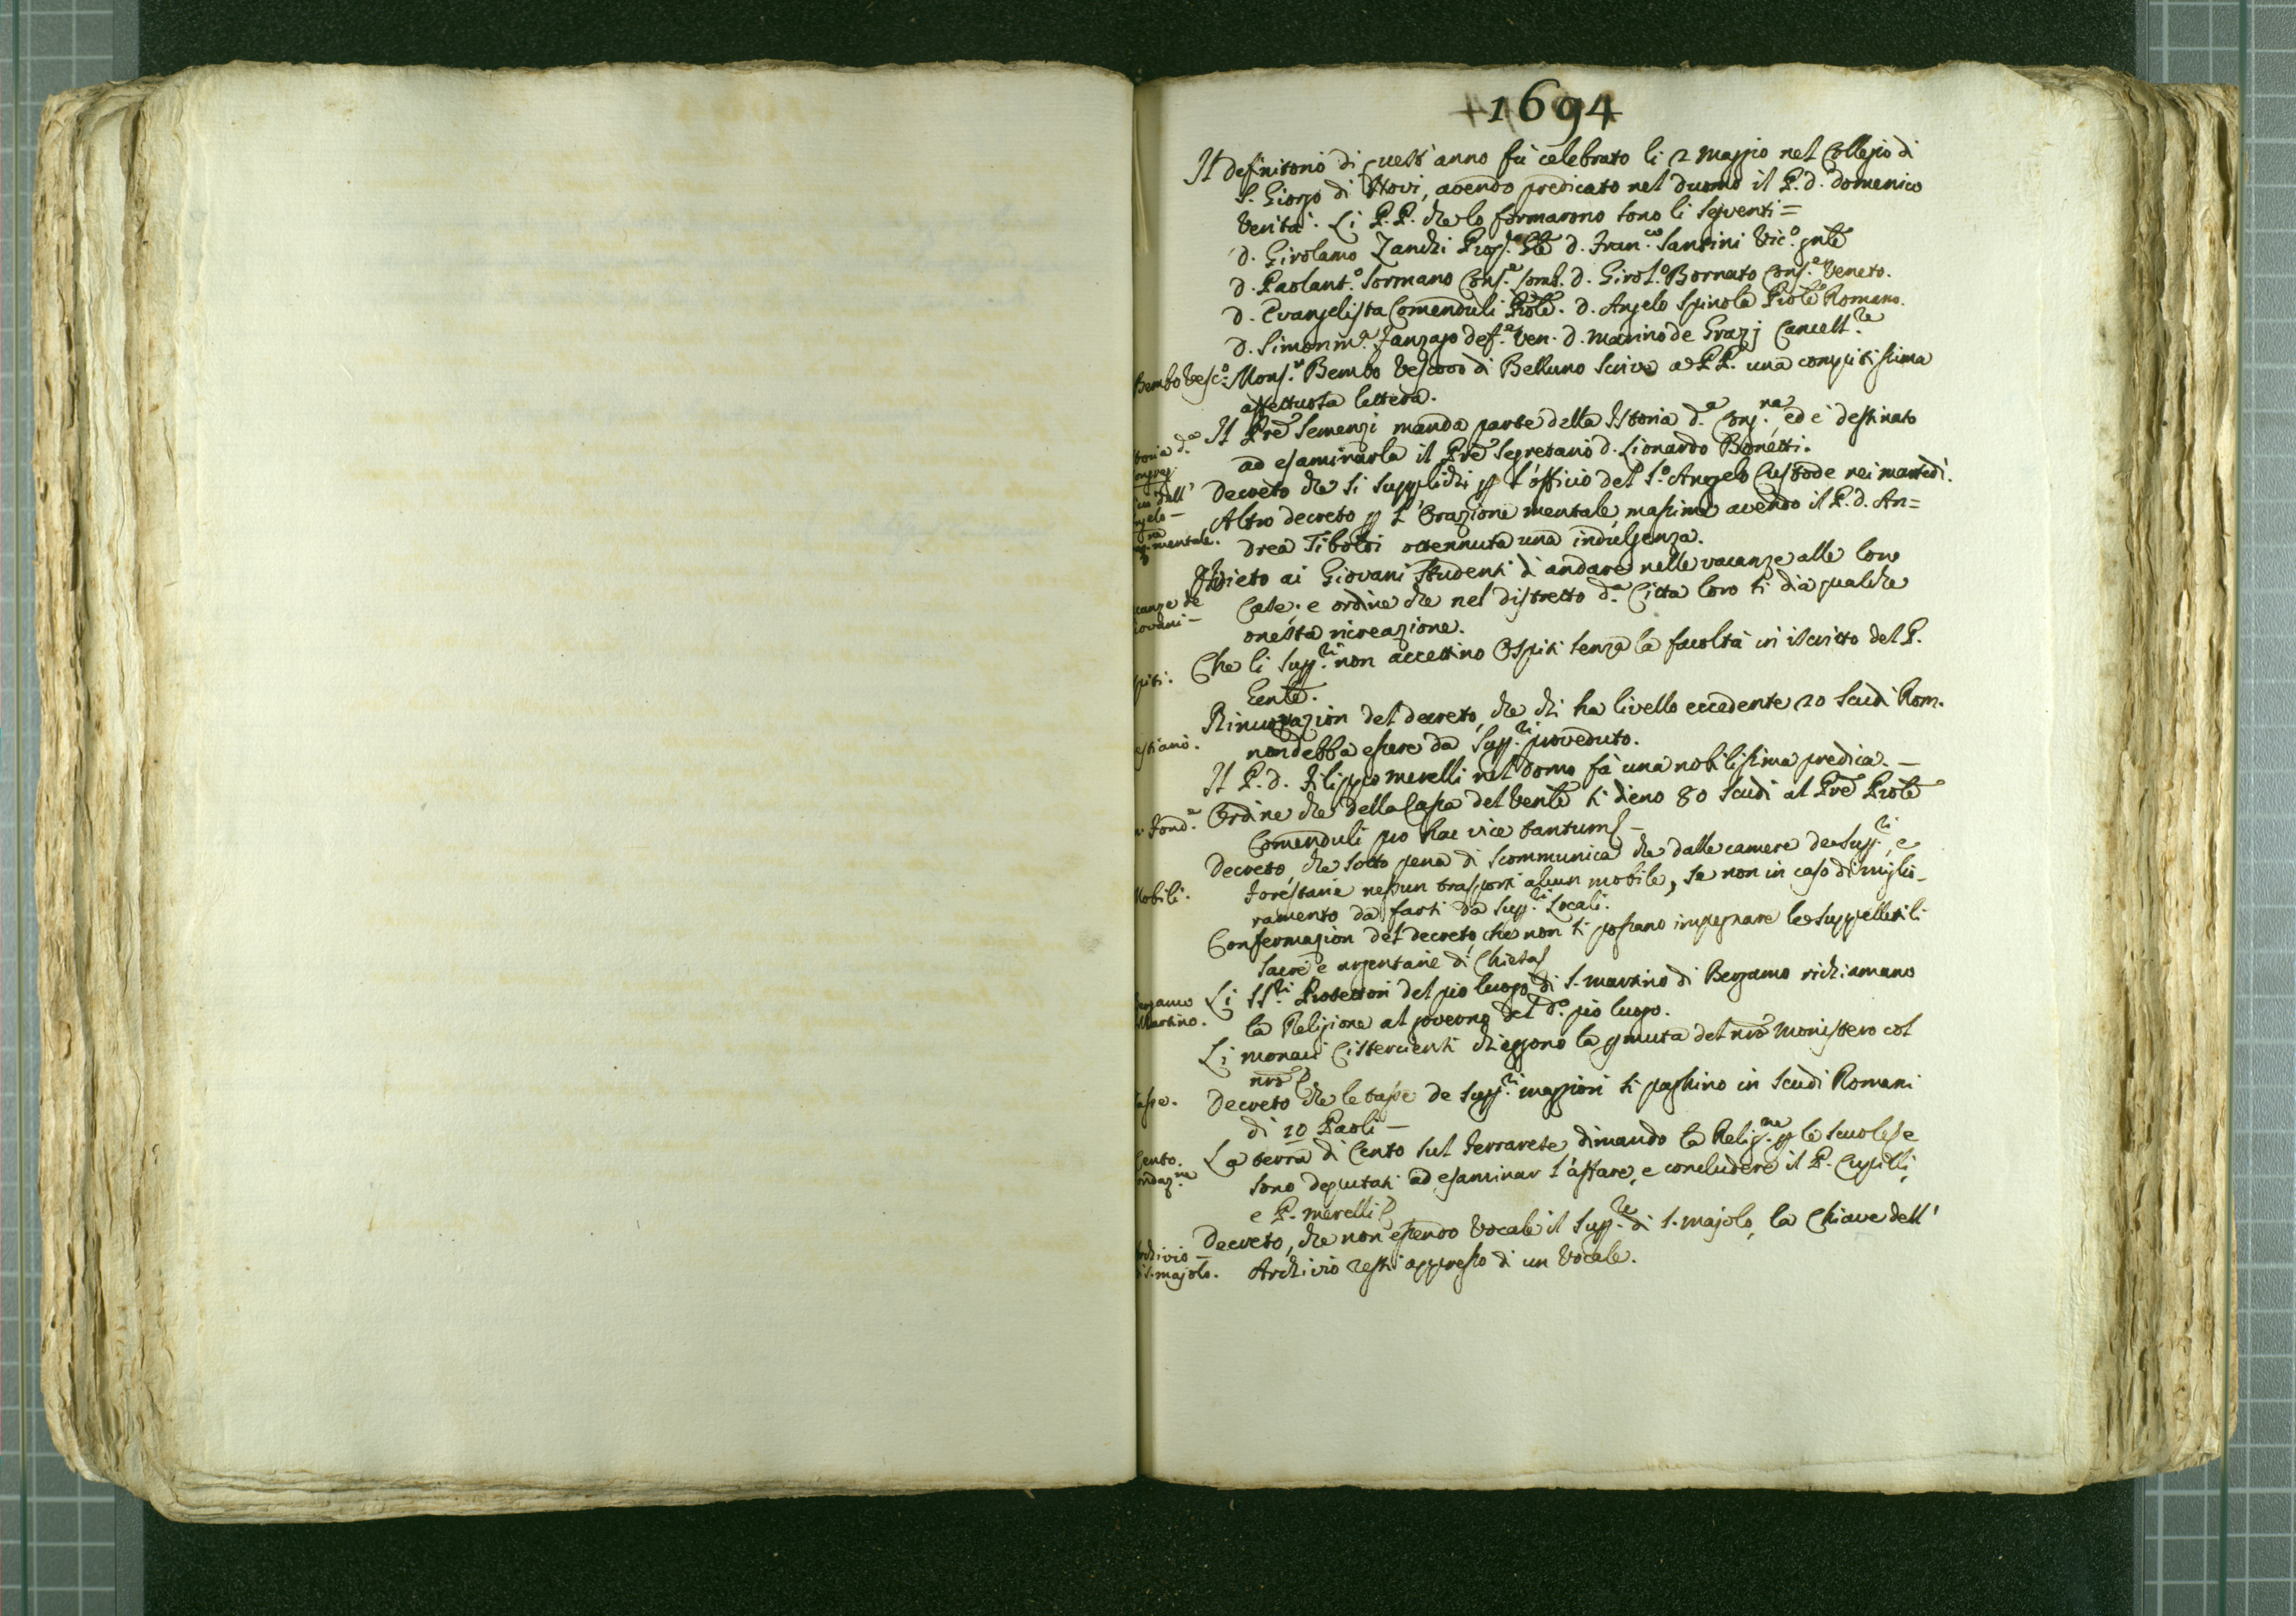 +1694
Il definitorio di quest'anno fù celebrato li 2 Maggio nel Collegio di
S. Giorgio di Novi, avendo predicato nel duomo il P. d. Domenico
Verità. Li P.P. che lo formarono sono li seguenti =
D. Girolamo Zanchi Prep.to Gle D. Fran.co Santini Vic.o gnle
D. Paolant.o Sormano Cons.e Lomb. D. Girol.o Bornato Cons.e Veneto.
D. Evangelista Comenduli Prole. D. Angelo Spinola Prole Romano.
D. Simon m.a Fanzago def.e Ven. D. Marino de Grazj Cancell.re
Bembo Vesc.o Mons.r Bembo Vescovo di Belluno scrive a PP. una compitissima
affettuosa lettera.
Il Pre Semenzi manda parte della Istoria d.a Cong.ne ed è destinato
toria d.a
ongreg.
ad esaminarla il Pre Segretario d. Lionardo Bonetti.
dell'
ngelo –
Decreto che si supplichi p l'officio del S.o Angelo Custode nei martedì.
mentale.
Altro decreto p l'Orazione mentale, massime avendo il P. d. An=
drea Tiboldi ottennuta una indulgenza.
Divieto ai Giovani Studenti di andare nelle vacanze alle loro
canze de
iovani –
Case. e ordine che nel distretto d.a Città loro si dia qualche
onesta ricreazione.
spiti.
Che li Supp.ri non accettino Ospiti senza la facoltà in iscritto del P.
Gente.
Rinuovazion del decreto, che chi ha livello eccedente 20 scudi Rom.
estiario.
non debba essere da Supp.ri proveduto.
Il P. d. Filippo Merelli nel Domo fà una nobilissima predica. –
Fond.e
Ordine che della Cassa del Venle si dieno 80 scudi al Pre Prole
Comenduli pro hac vice tantum –
Decreto, che sotto pena di scommunica che dalle camere de Supp.ri, e
Mobili.
Forestarie nessun trasporti alcun mobile, se non in caso di miglio-
ramento da farsi da Supp.ri Locali.
Confermazion del decreto, che non si possano impegnare le suppelletili
sacre e argentarie di Chiesa
ergamo
Martino.
Li SS.ri Protettori del pio luogo di S. Martino di Bergamo richiamano
la Religione al governo del d.o pio luogo.
Li monaci Cisterciensi chieggono la pmuta del nro monistero col
nro
Tasse.
Decreto che le tasse de Supp.ri maggiori si paghino in scudi Romani
di 10 Paoli –
Cento.
ondaz.ne
La terra di Cento sul Ferrarese dimanda la Relig.ne p le scuole, e
sono deputati ad esaminar l'affare, e concludere il P. Cupilli,
e P. Merelli
Archivio –
di S. Majolo.
Decreto, che non essendo Vocale il Supp.re di S. Majolo, la Chiave dell'
Archivio resti appresso di un Vocale.